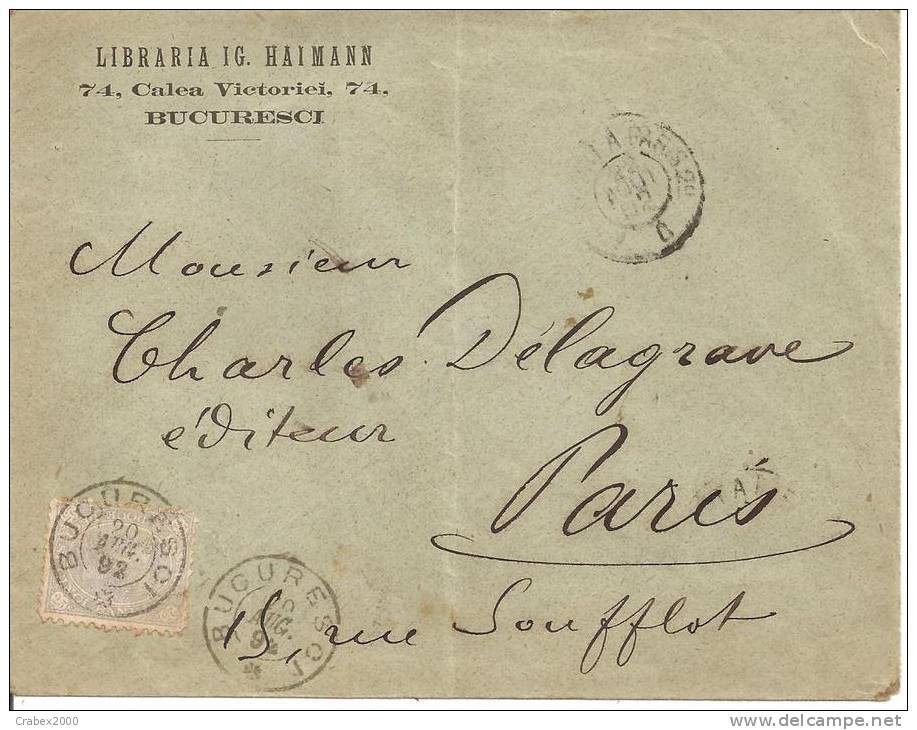 LIBRARIA IG. HAIMANN
74, Calea Victoriei, 74,
BUCURESCI
Monsieur
Charles Délagrave
éditeur
Paris
15, rue Soufflot
BUCURESCI
20
AUG.
92
BUCURESCI
AUG.
92
Crabex2000
www.delcampe.net